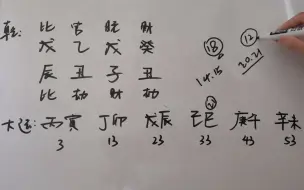 乾: 比 官 财
戊 乙 戊 癸 18 12
辰 丑 子 丑 14.15 20.21
比 劫 财 劫
大运: 丙寅 丁卯 戊辰 己巳 庚午 辛未
3 13 23 33 43 53